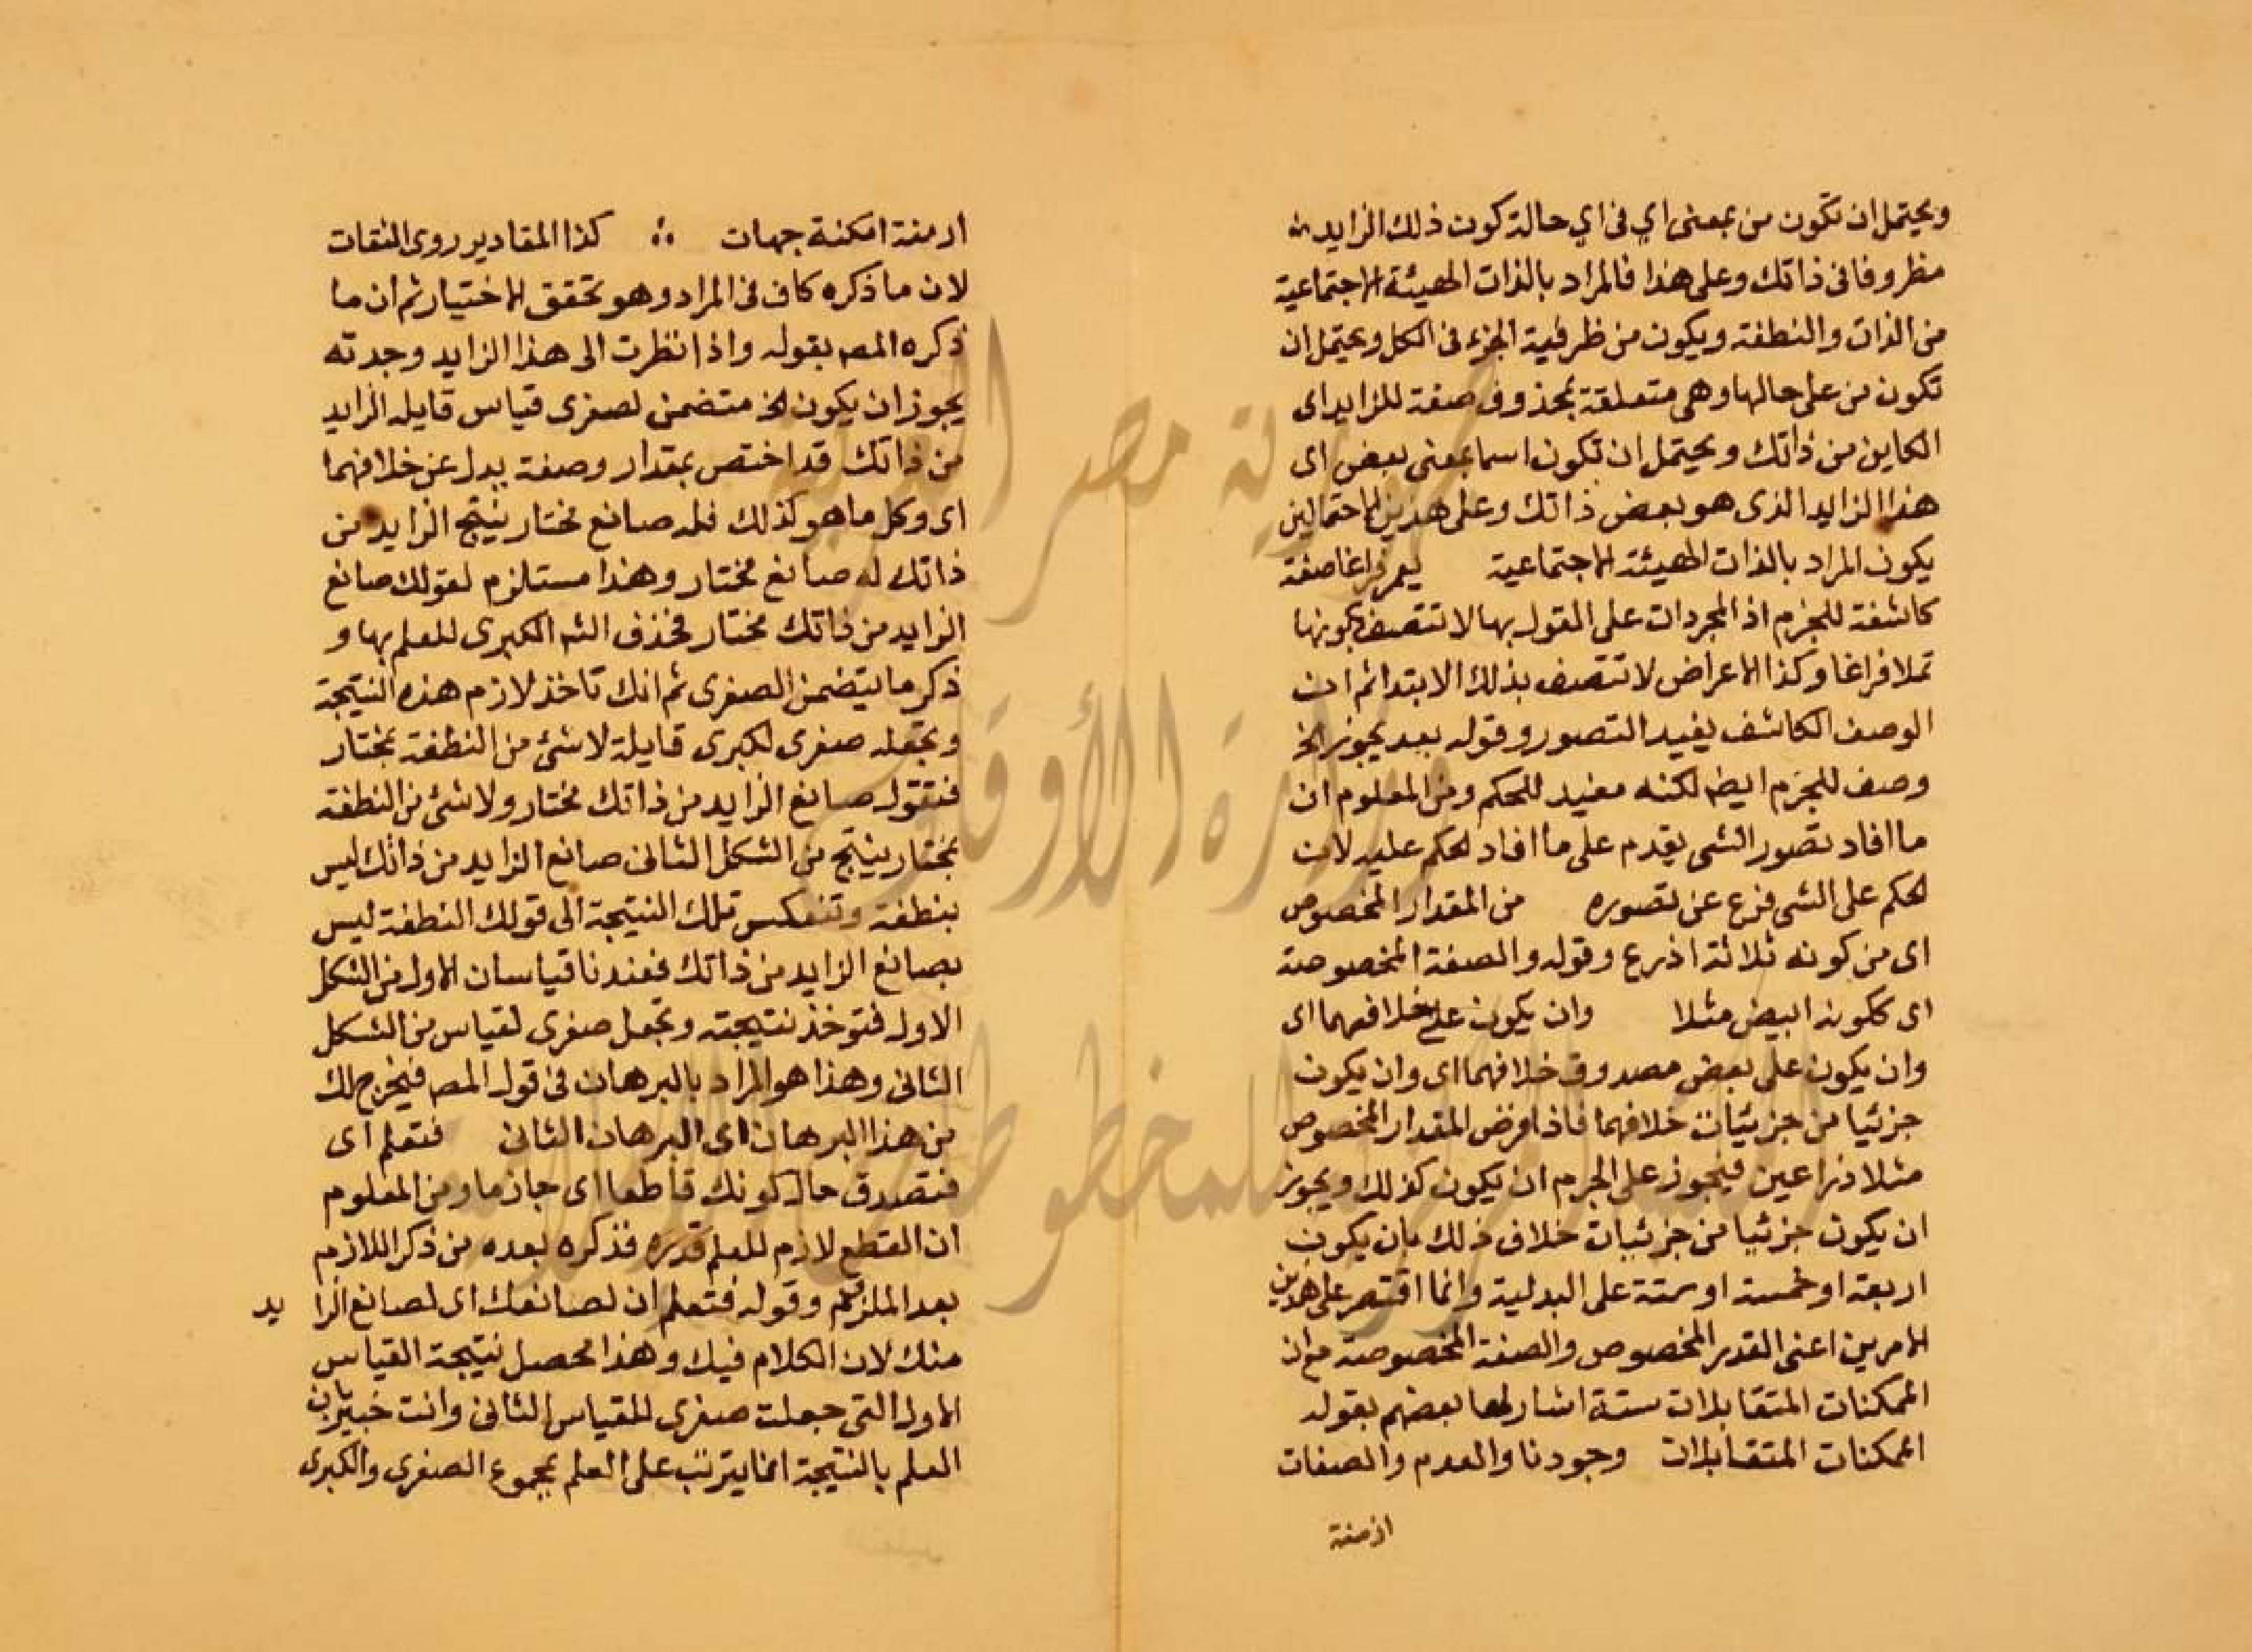 ويحتمل ان تكون من بمعنى اي في اي حالة كون ذلك الزايد
مظروفا في ذاتك وعلى هذا فالمراد بالذات الهيئة الاجتماعية
من الذات والنطفة ويكون من ظرفية الجزء في الكل ويحتمل ان
تكون من على حالها وهي متعلقة بمحذوف صفة للزايد اى
الكاين من ذاتك ويحتمل ان تكون اسما بمعنى بعض اى
هذا الزايد الذى هو بعض ذاتك وعلى هذين الاحتمالين
يكون المراد بالذات الهيئة الاجتماعية يعمر فراغا صفة
كاشفة للجرم اذ المجردات على القول بها لا تتصف بكونها
تملا فراغا وكذا الاعراض لا تتصف بذلك الابتدا ثم ان
الوصف الكاشف يفيد التصور وقوله بعد يجوز الخ
وصف للجرم ايضا لكنه مفيد للحكم ومن المعلوم ان
ما افاد تصور الشى يقدم على ما افاد لحكم عليه لان
لحكم على الشى فرع عن تصوره من المقدار المخصوص
اى من كونه ثلاثة اذرع وقوله والصفة المخصوصة
اى ككونه ابيض مثلا وان يكون على خلافهما اى
وان يكون على بعض مصدوق خلافهما اى وان يكون
جزئيا من جزئيات خلافهما فاذا فرض المقدار المخصوص
مثلا ذراعين فيجوز على الجرم ان يكون كذلك ويجوز
ان يكون جزئيا من جزئيات خلاف ذلك بان يكون
اربعة او خمسة او ستة على البدلية وانما اقتصر على هذين
الامرين اعنى القدر المخصوص والصفة المخصوصة مع ان
الممكنات المتقابلات ستة اشار لها بعضهم بقوله
الممكنات المتقابلات وجودنا والعدم والصفات
ازمنة
ازمنة امكنة جهات كذا المقادير روى الثقات
لان ما ذكره كاف في المراد وهو تحقق الاختيار ثم ان ما
ذكره المص بقوله واذا نظرت الى هذا الزايد وجدته
يجوز ان يكون الخ متضمن لصغرى قياس قايله الزايد
من ذاتك قد اختص بمقدار وصفة بدل عن خلافهما
اى وكل ما هو كذلك فله صانع مختار ينتج الزايد من
ذاتك له صانع مختار وهذا مستلزم لقولك صانع
الزايد من ذاتك مختار فحذف الشه الكبرى للعلم بها و
ذكر ما يتضمن الصغرى ثم انك تاخذ لازم هذه النتيجة
وتجعله صغرى لكبرى قايلة لا شئ من النطفة بمختار
فتقول صانع الزايد من ذاتك مختار ولا شئ من النطفة
بمختار ينتج من الشكل الثانى صانع الزايد من ذاتك ليس
بنطفة وتنعكس تلك النتيجة الى قولك النطفة ليس
بصانع الزايد من ذاتك فعندنا قياسان الاول من الشكل
الاول فتوخذ نتيجته وتجعل صغرى لقياس من الشكل
الثانى وهذا هو المراد بالبرهان في قول المص فيخرج لك
من هذا البرهان اى البرهان الثانى فتعلم اى
فتصدق حال كونك قاطعا اى جازما ومن المعلوم
ان القطع لازم للعلم فذكره بعده من ذكر اللازم
بعد الملزوم وقوله فتعلم ان لصانعك اى لصانع الزايد
منك لان الكلام فيك وهذا محصل نتيجة القياس
الاول التى جعلت صغرى للقياس الثانى وانت خبير بان
العلم بالنتيجة انما يترتب على العلم بمجموع الصغرى والكبرى
جمهورية مصر العربية
وزارة الأوقاف